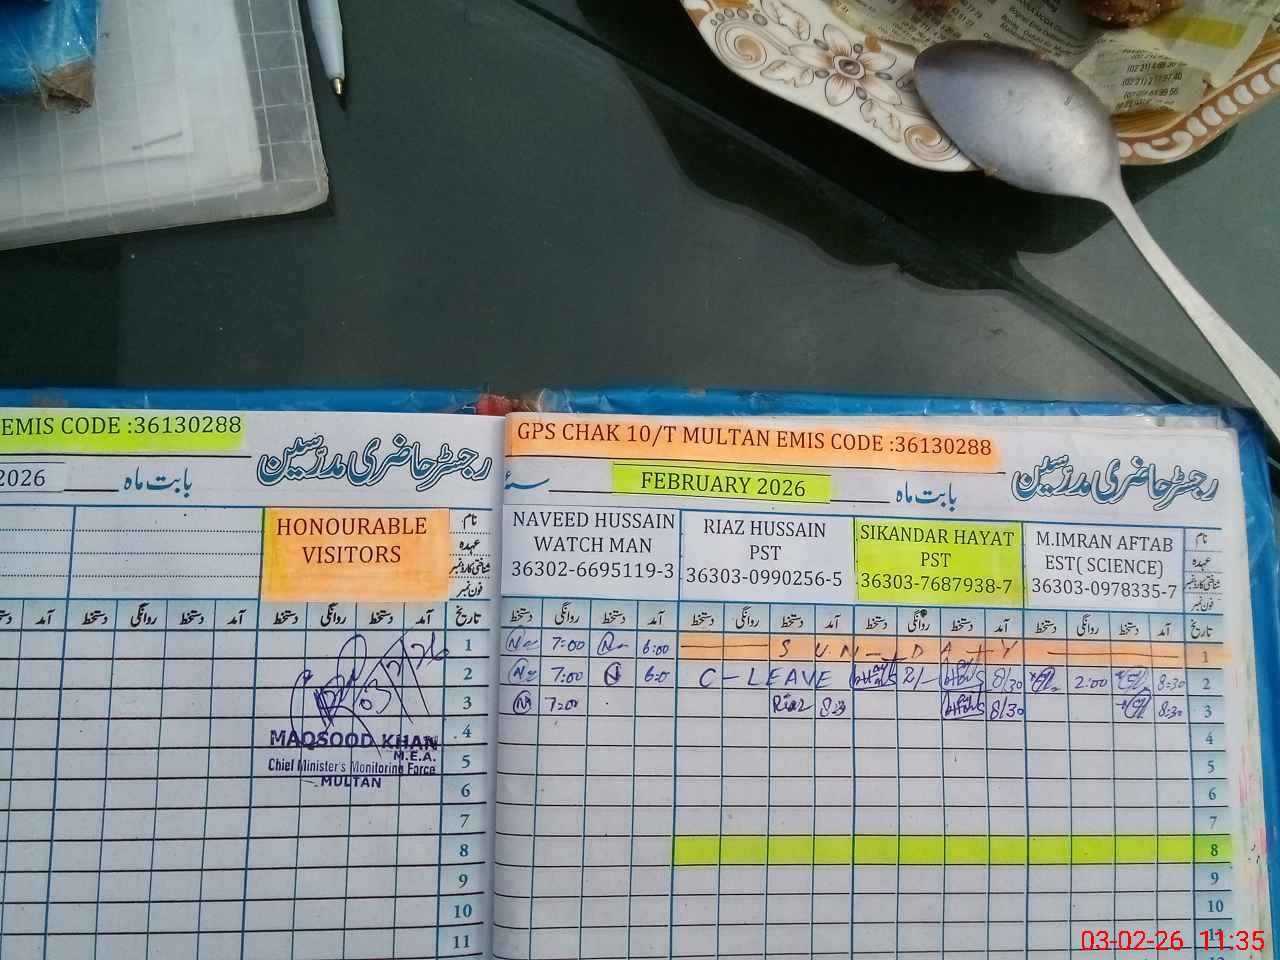 EMIS CODE :36130288
رجسٹر حاضری مدرسین
2026 بابت ماہ
HONOURABLE VISITORS
نام
عہدہ
شناختی کارڈ نمبر
فون نمبر
آمد دستخط روانگی دستخط تاریخ
1
2
3
4
5
6
7
8
9
10
11
MAQSOOD KHAN
M.E.A.
Chief Minister's Monitoring Force
MULTAN
GPS CHAK 10/T MULTAN EMIS CODE :36130288
رجسٹر حاضری مدرسین
بابت ماہ FEBRUARY 2026
NAVEED HUSSAIN
WATCH MAN
36302-6695119-3
RIAZ HUSSAIN
PST
36303-0990256-5
SIKANDAR HAYAT
PST
36303-7687938-7
M.IMRAN AFTAB
EST( SCIENCE)
36303-0978335-7
نام
عہدہ
شناختی کارڈ نمبر
فون نمبر
دستخط روانگی دستخط آمد دستخط روانگی دستخط آمد دستخط روانگی دستخط آمد دستخط روانگی دستخط آمد تاریخ
7:00 6:00 S U N D A Y 1
7:00 6:0 C - LEAVE 2/- 8/30 2:00 8:30 2
7:00 Riaz 8/30 8:30 3
4
5
6
7
8
9
10
11
03-02-26 11:35